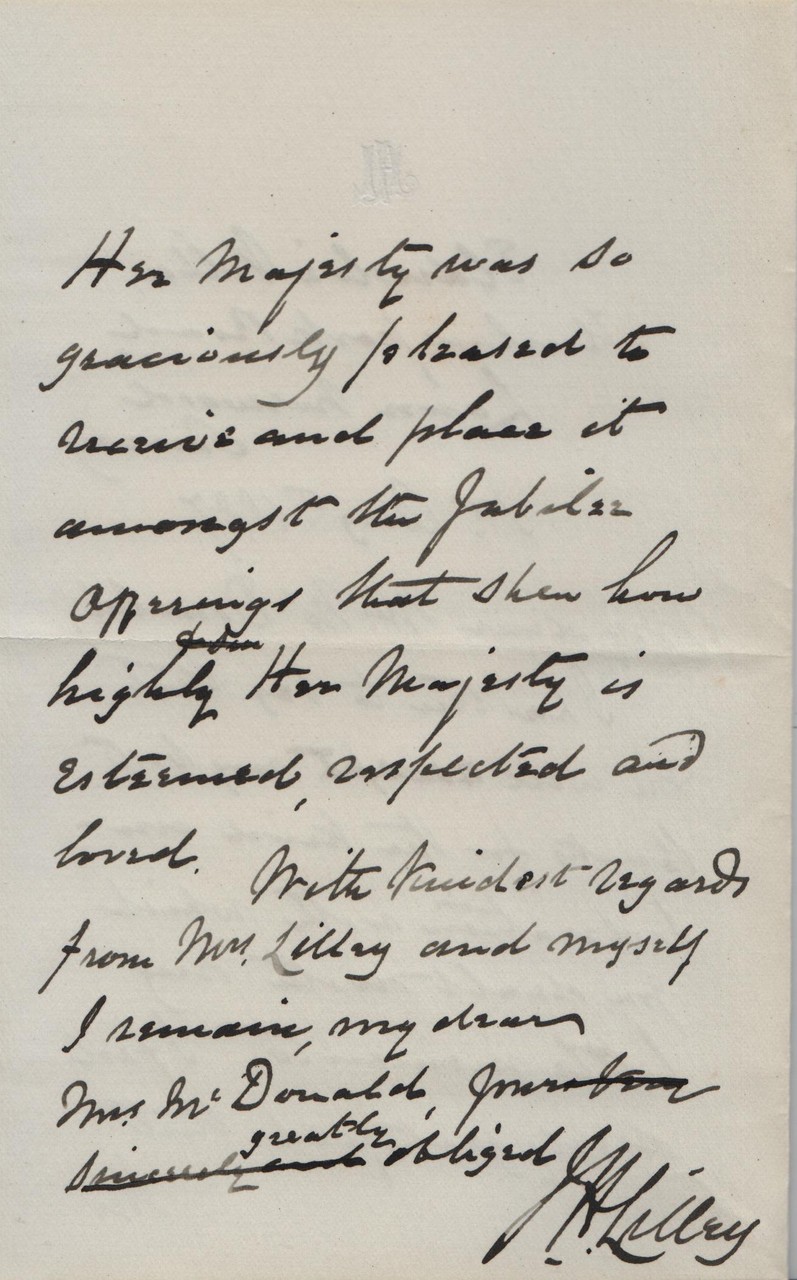 Her Majesty was so
graciously pleased to
receive and place it
amongst the Jubilee
Offerings that shew how
highly Her Majesty is
esteemed, respected and
loved. With kindest regards
from Mrs. Lilley and myself
I remain, my dear
Mrs. Mc Donald, yours
greatly
sincerely and obliged
J H Lilley